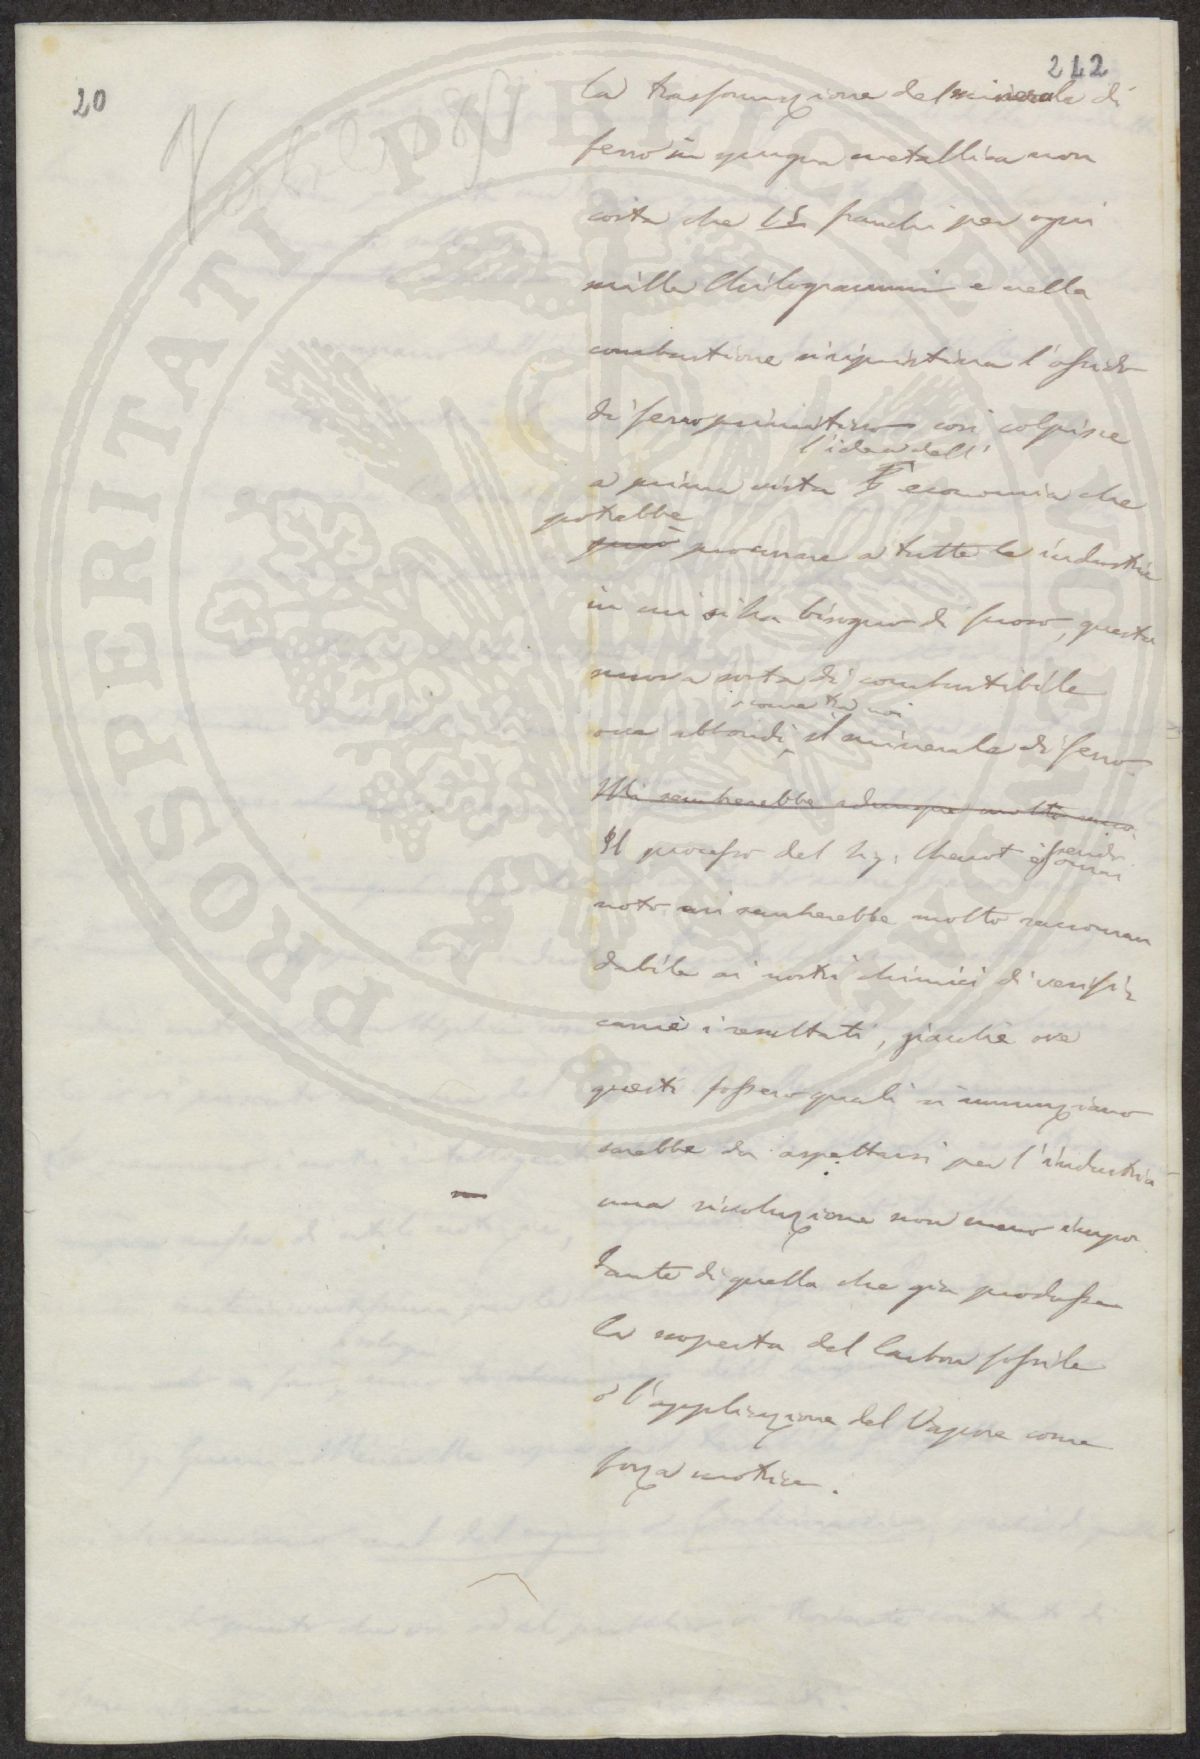 20
242
La trasformazione del minerale di
ferro in spugna metallica non
costa che 15 franchi per ogni
mille Chilogrammi e nella
combustione si ripristina l'ossido
di ferro primitivo così colpisce
l'idea dell'
a prima vista l' economia che
potrebbe
può procurare a tutte le industrie
in cui si ha bisogno di fuoco, questa
nuova sorta di combustibile
come tra noi
ove abbondi, il minerale di ferro.
Mi sembrerebbe adunque molto racco.
Il processo del Sig. Chenot essendo omai
noto mi sembrerebbe molto raccoman
dabile ai nostri chimici di verifi=
carne i resultati, giacchè ove
questi fossero quali si annunziano
sarebbe da aspettarsi per l'industria
una rivoluzione non meno impor
tante di quella che già produsse
la scoperta del Carbon fossile
o l'applicazione del Vapore come
forza motrice.
PROSPERITATI PVBLICAE AVGENDAE